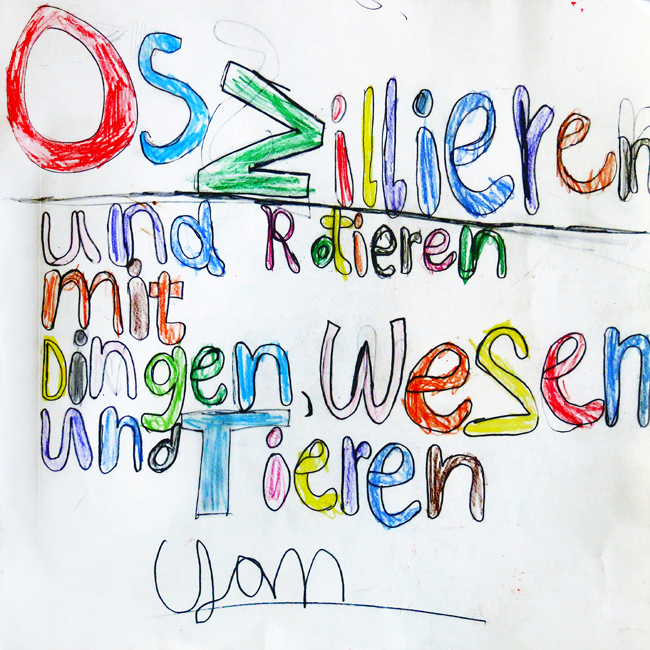 Oszillieren
und Rotieren
mit
Dingen, Wesen
und Tieren
Yam